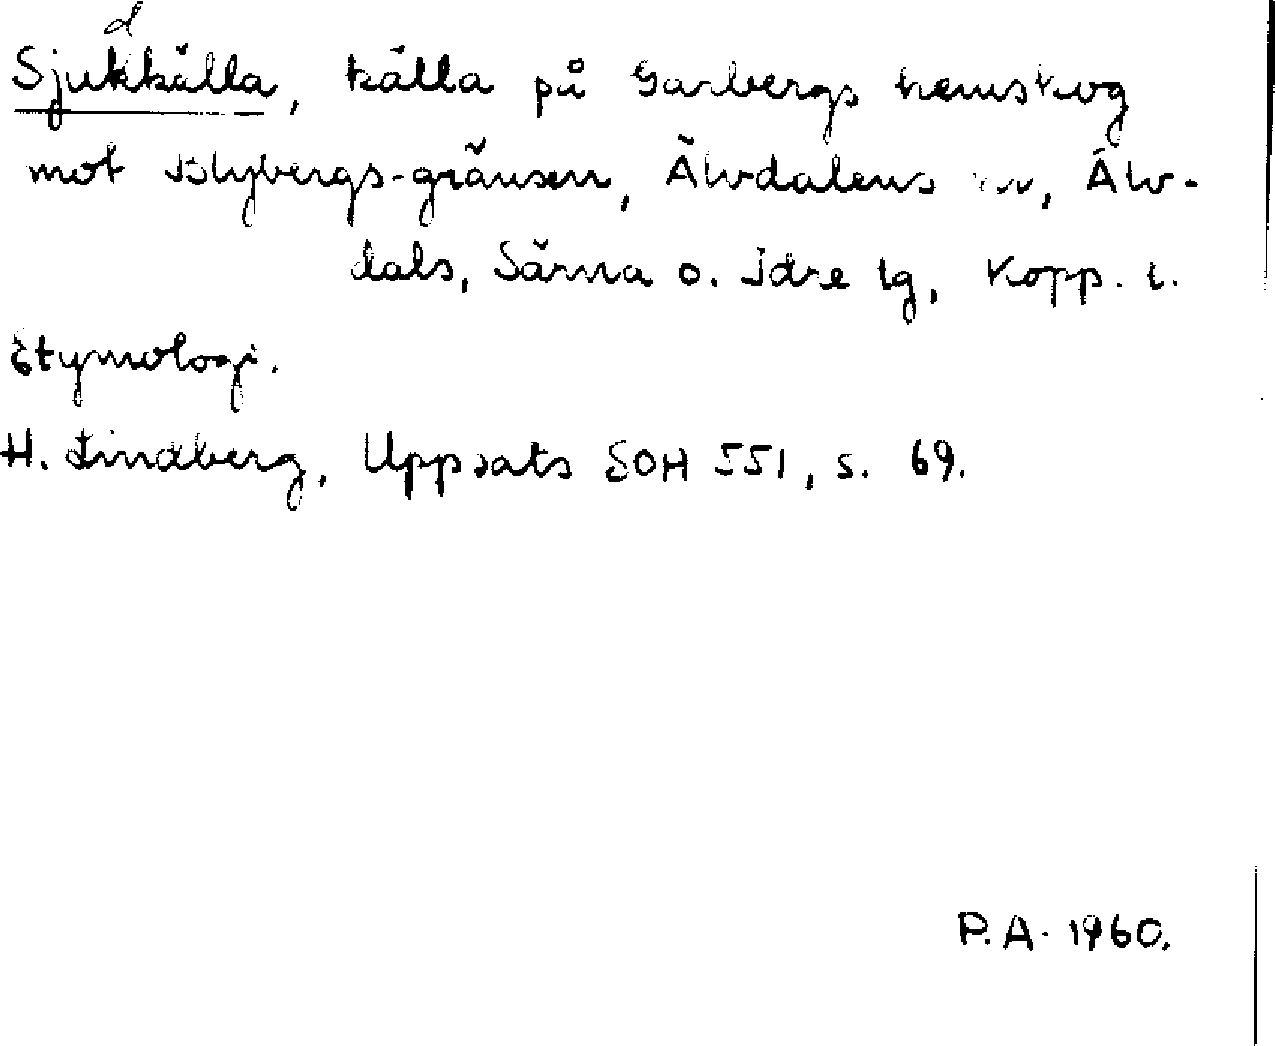 d
Sjukkälla, källa på Garbergs hemskog
mot Blybergs-gränsen, Älvdalens sn, Älv-
dals, Särna o. Idre tg, Kopp. l.
Etymologi.
H. Lindberg, Uppsats SOH 551, s. 69.
P.A. 1960.